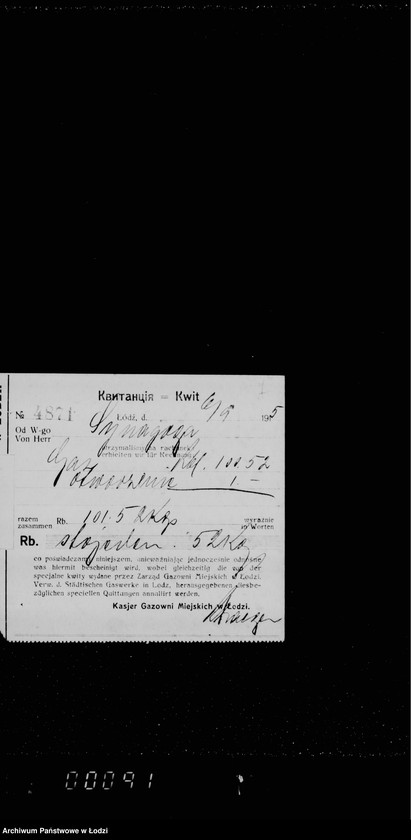 Квитанція = Kwit
№ 4871 Łódź, d. 6/9 1915
Od W-go
Von Herr Synagoga
otrzymaliśmy za rachunek
erhielten wir für Rechnung
Gaz Rbl. 100.52
otworzenie 1.–
razem
zusammen Rb. 101,52 Kop wyraźnie
in Worten
Rb. stojeden. 52 Kop
co poświadczamy niniejszem, unieważniając jednocześnie odnośne
was hiermit bescheinigt wird, wobei gleichzeitig die von der
specjalne kwity wydane przez Zarząd Gazowni Miejskich w Łodzi.
Verw. d. Städtischen Gaswerke in Lodz, herausgegebenen diesbe-
züglichen speciellen Quittungen annulliert werden.
Kasjer Gazowni Miejskich w Łodzi.
00091
Archiwum Państwowe w Łodzi